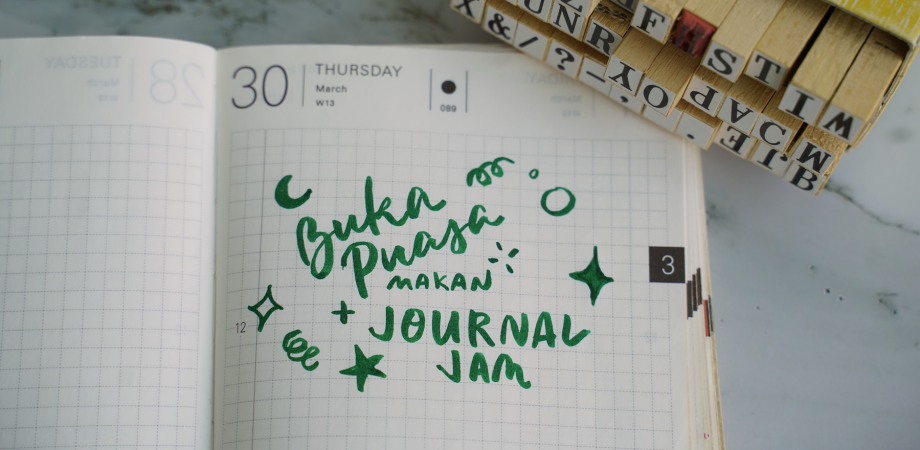 30
THURSDAY
March
W13
089
TUESDAY
28
March
W13
Buka
Puasa
MAKAN
JOURNAL
JAM
3
12
X & / ? -
U N R Y O
F S T
P A C
E J B
I W
M